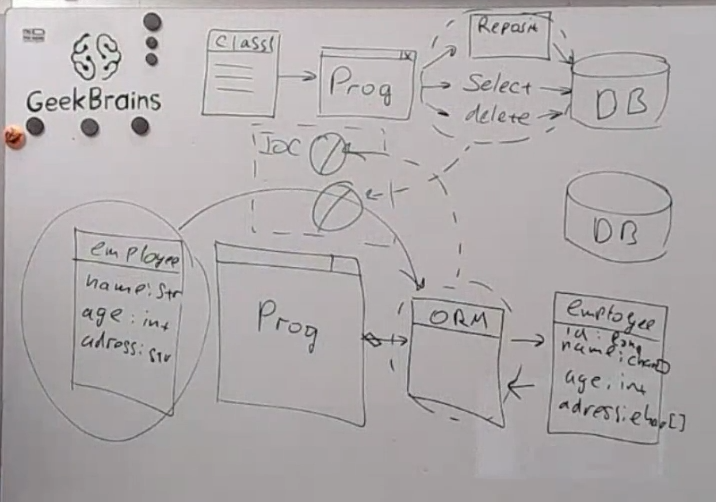 GeekBrains
Class1
Prog
Reposit
Select
delete
DB
IoC
DB
employee
name:str
age:int
adress:str
Prog
ORM
employee
id: long
name:char[]
age:int
adress:char[]